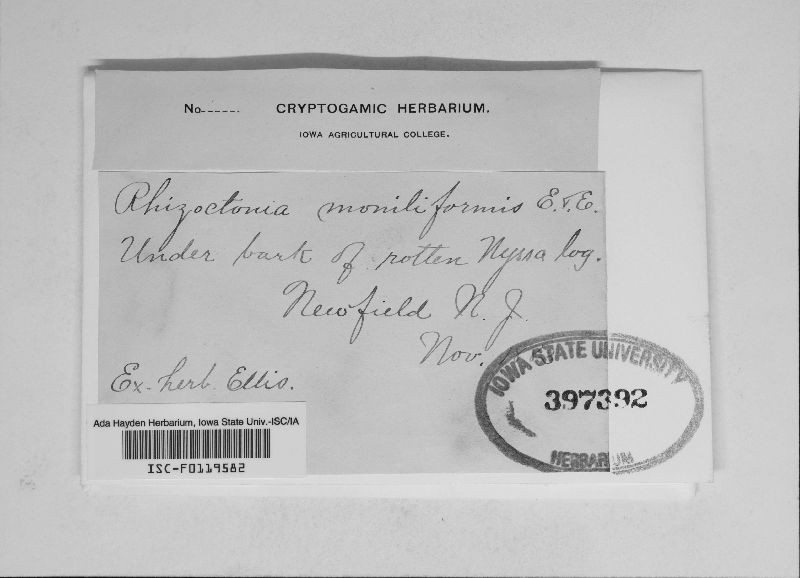 No.......
CRYPTOGAMIC HERBARIUM.
IOWA AGRICULTURAL COLLEGE.
Rhizoctonia moniliformis E.&E.
Under bark of rotten Nyssa log.
Newfield N. J.
Nov.
Ex. herb. Ellis.
IOWA STATE UNIVERSITY
397392
HERBARIUM
Ada Hayden Herbarium, Iowa State Univ.-ISC/IA
ISC-F0119582